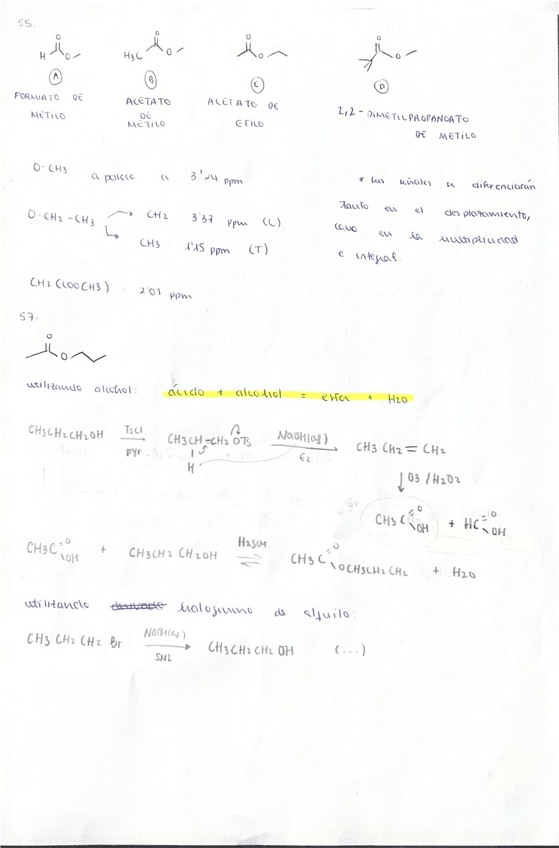 55.
O
H
O
O
H3C
O
O
O
O
O
A
B
C
D
FORMIATO DE
METILO
ACETATO
DE
METILO
ACETATO DE
ETILO
2,2-DIMETILPROPANOATO
DE METILO
O-CH3 aparece a ppm
O-CH2-CH3
CH2 3'37 ppm (C)
CH3 1'15 ppm (T)
CH3(COOCH3) 2'01 ppm
* Las señales se diferenciarán
tanto en el desplazamiento,
como en la multiplicidad
e integral.
57.
O
O
utilizando alcohol: ácido + alcohol = ester + H2O
CH3CH2CH2OH
TsCl
pyr
CH3CH-CH2OTs
H
NaOH(aq)
E2
CH3 CH2 = CH2
O3/H2O2
CH3 C O OH + HC O OH
CH3C O OH + CH3CH2CH2OH
H2SO4
CH3C O OCH3CH2CH2 + H2O
utilizando halogenuro de alquilo:
CH3 CH2 CH2 Br
NaOH(aq)
SN2
CH3CH2CH2 OH (...)